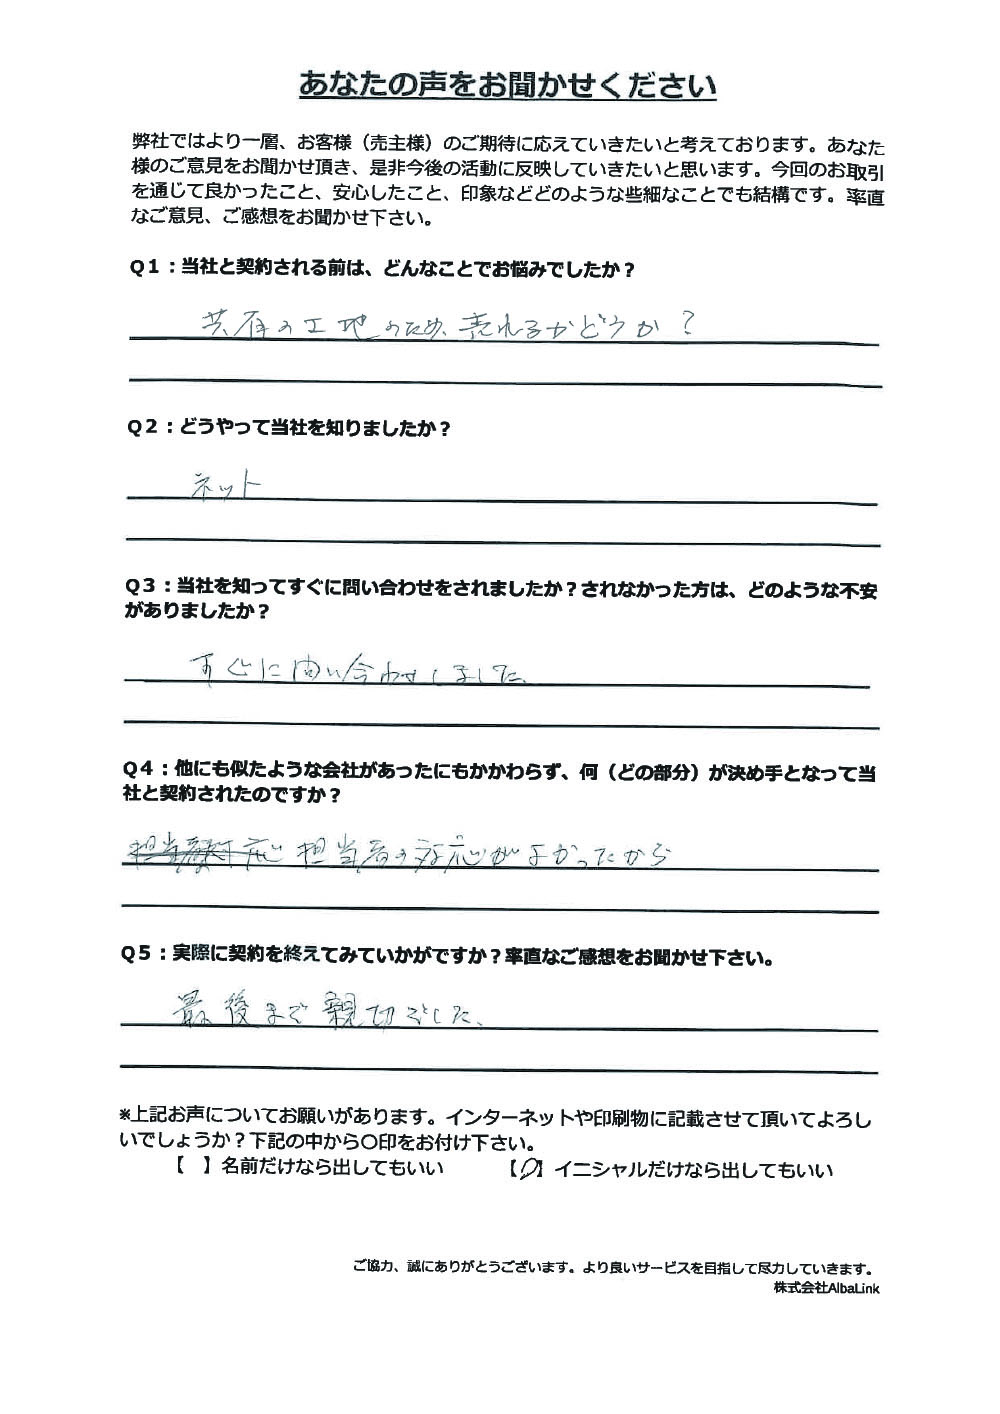 あなたの声をお聞かせください
弊社ではより一層、お客様（売主様）のご期待に応えていきたいと考えております。あなた
様のご意見をお聞かせ頂き、是非今後の活動に反映していきたいと思います。今回のお取引
を通じて良かったこと、安心したこと、印象などどのような些細なことでも結構です。率直
なご意見、ご感想をお聞かせ下さい。
Q1：当社と契約される前は、どんなことでお悩みでしたか？
共有の土地のため、売れるかどうか？
Q2：どうやって当社を知りましたか？
ネット
Q3：当社を知ってすぐに問い合わせをされましたか？されなかった方は、どのような不安
がありましたか？
すぐに問い合わせしました、
Q4：他にも似たような会社があったにもかかわらず、何（どの部分）が決め手となって当
社と契約されたのですか？
担当者の対応がよかったから
Q5：実際に契約を終えてみていかがですか？率直なご感想をお聞かせ下さい。
最後まで親切でした、
※上記お声についてお願いがあります。インターネットや印刷物に記載させて頂いてよろし
いでしょうか？下記の中から〇印をお付け下さい。
【 】名前だけなら出してもいい 【〇】イニシャルだけなら出してもいい
ご協力、誠にありがとうございます。より良いサービスを目指して尽力していきます。
株式会社AlbaLink